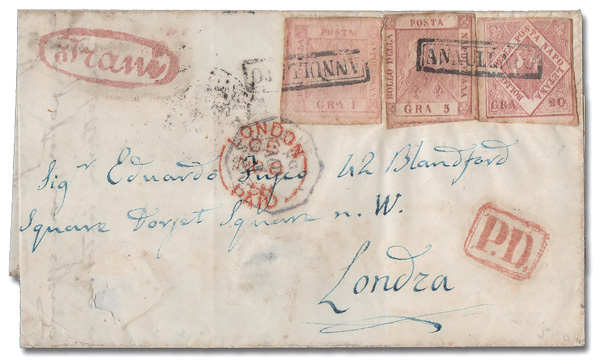 Trani
POSTA
GRA 1
BOLLO DELLA
POSTA
GRA 3
POSTA NAPO-
GRA 20
ANNULLATO
ANNULLATO
LONDON
PAID
Sigr Eduardo Fusco 42 Blandford
Square Dorset Square n. W.
P.D.
Londra